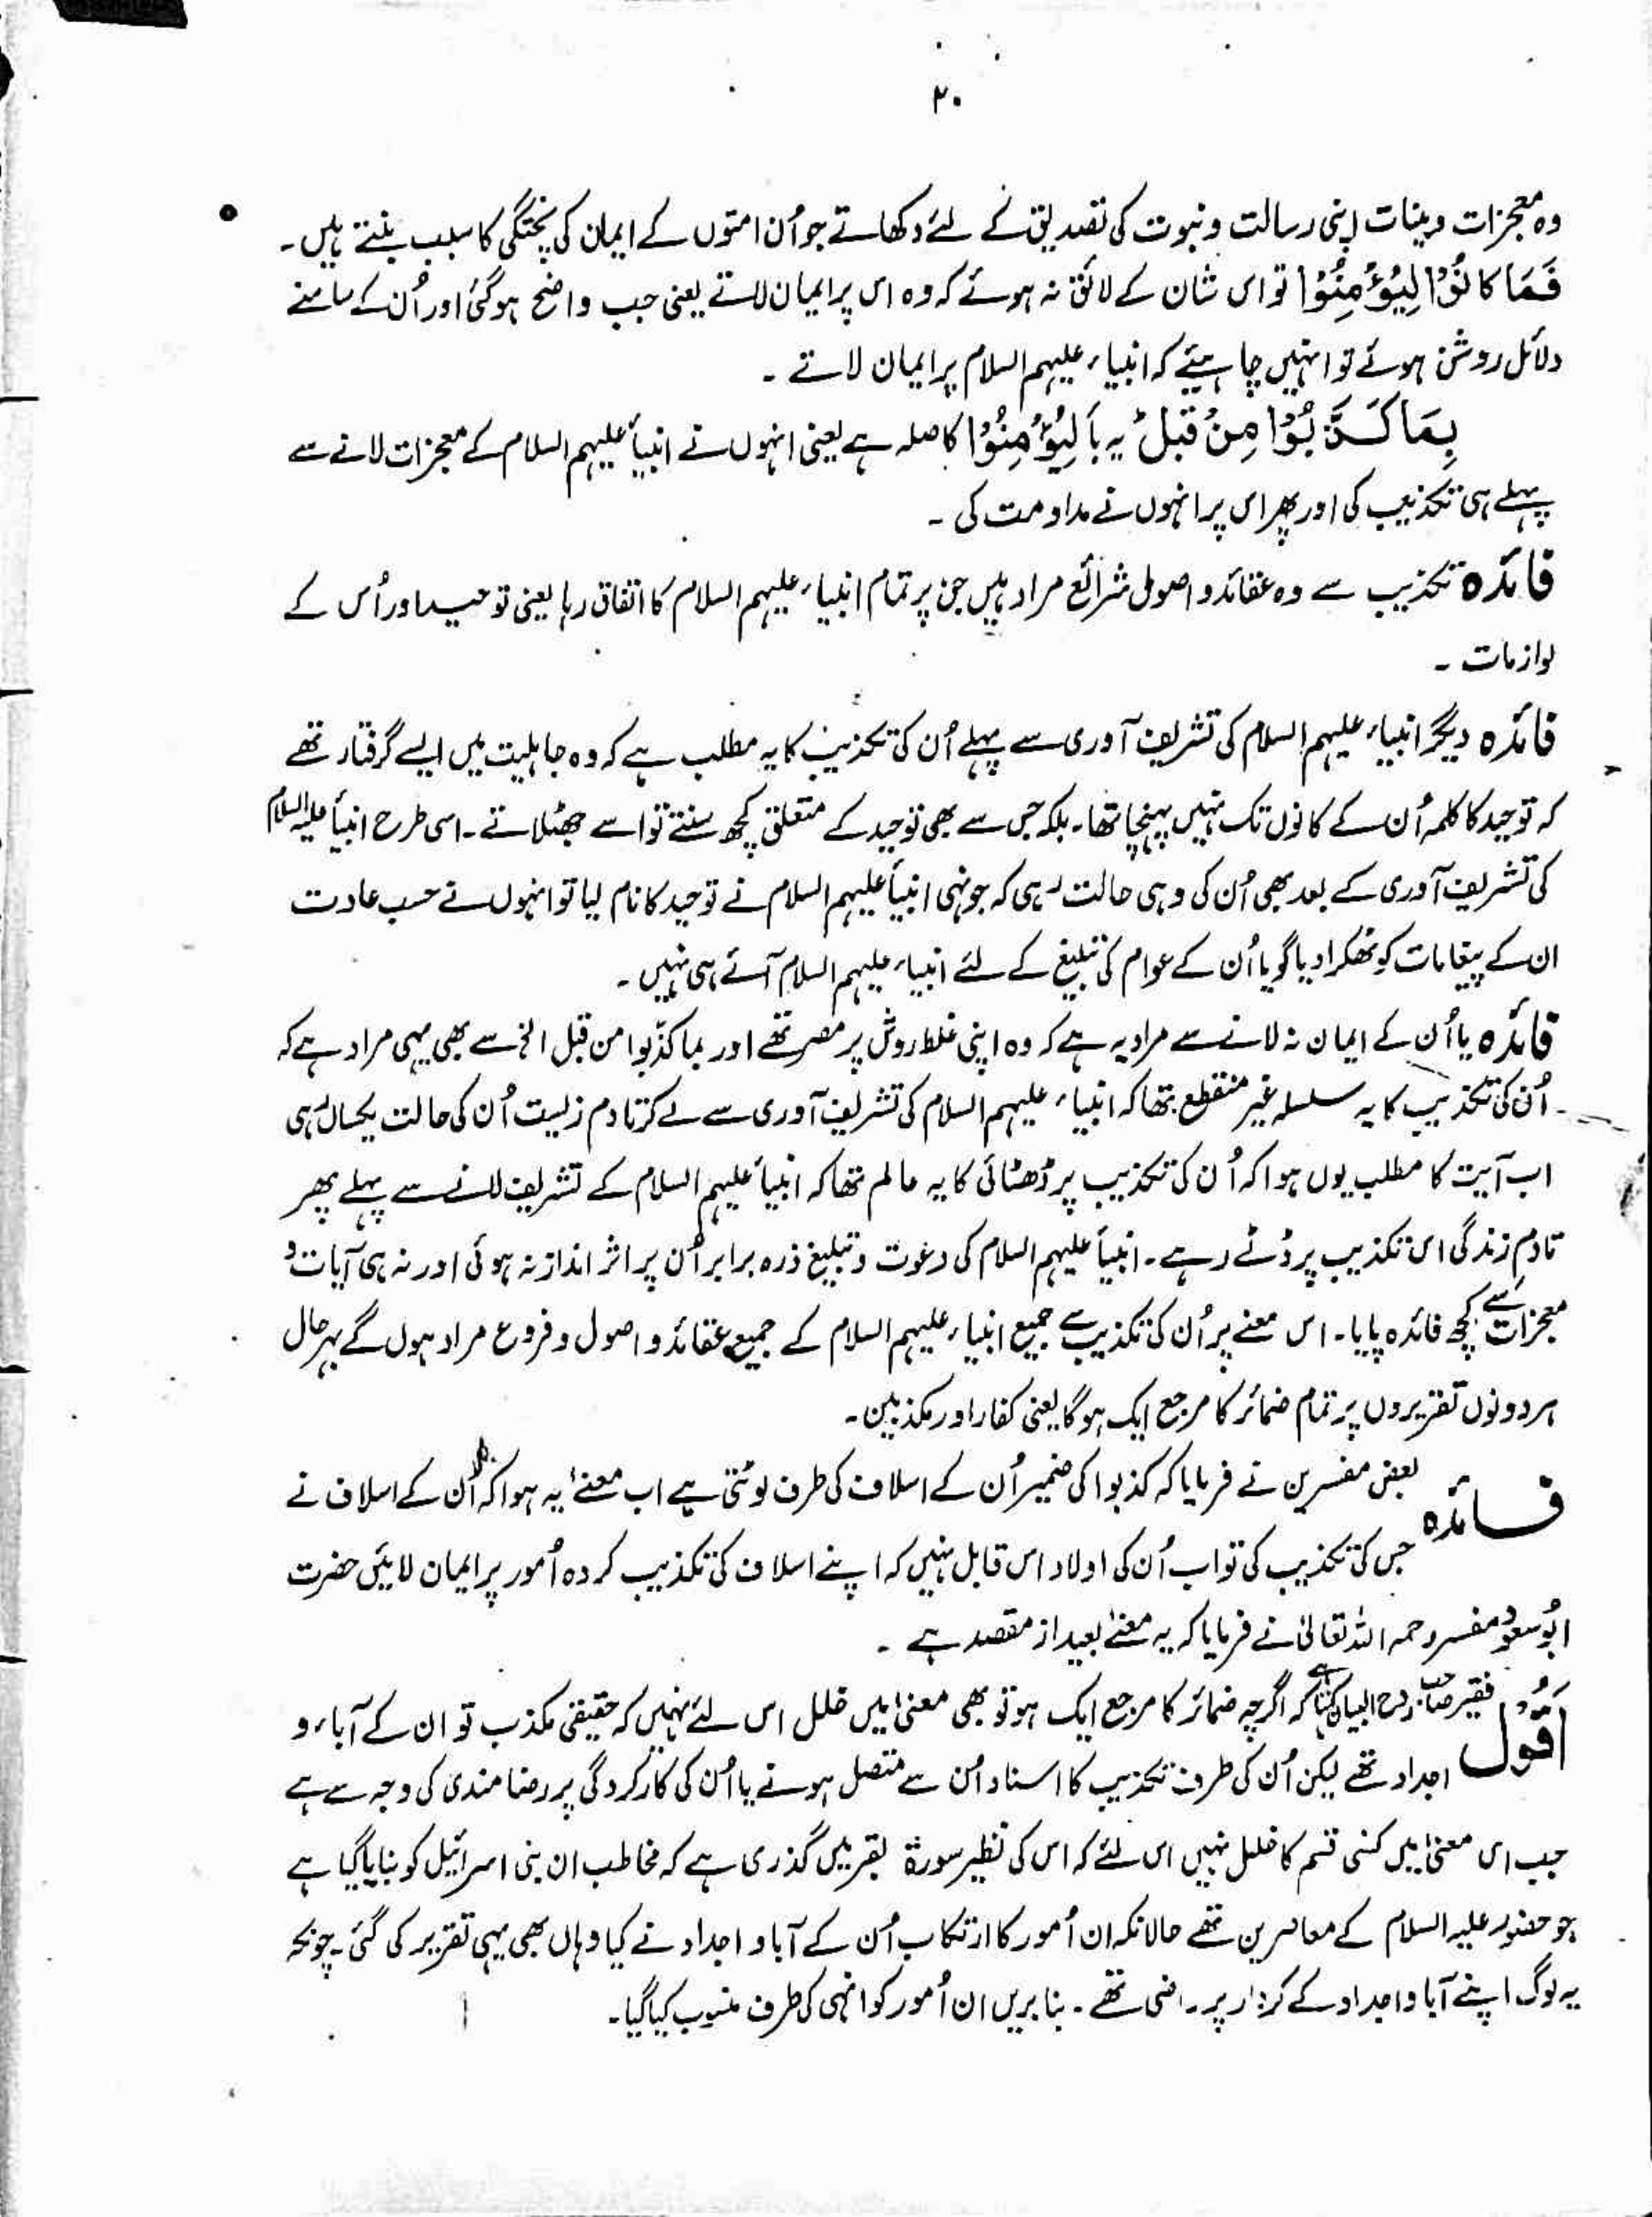 ۲۰
وہ معجزات وبینات اپنی رسالت و نبوت کی تصدیق کے لئے دکھاتے جو اُن امتوں کے ایمان کی پختگی کا سبب بنتے ہیں۔
فَمَا كَانُوْا لِيُؤْمِنُوْا تو اس شان کے لائق نہ ہوئے کہ وہ اس پر ایمان لاتے یعنی جب واضح ہوگئی اور اُن کے سامنے
دلائل روشن ہوئے تو انہیں چاہیئے کہ انبیاء علیہم السلام پر ایمان لاتے ۔
بِمَا كَذَّبُوْا مِنْ قَبْلُ یہ بأ لِيُؤْمِنُوْا کا صلہ ہے یعنی انہوں نے انبیأ علیہم السلام کے معجزات لانے سے
پہلے ہی تکذیب کی اور پھر اس پر انہوں نے مداومت کی ۔
فائدہ تکذیب سے وہ عقائد و اصول شرائع مراد ہیں جن پر تمام انبیاء علیہم السلام کا اتفاق رہا یعنی توحید اور اُس کے
لوازمات ۔
فائدہ دیگر انبیاء علیہم السلام کی تشریف آوری سے پہلے اُن کی تکذیب کا یہ مطلب ہے کہ وہ جاہلیت میں ایسے گرفتار تھے
کہ توحید کا کلمہ اُن کے کانوں تک نہیں پہنچا تھا۔ بلکہ جس سے بھی توحید کے متعلق کچھ سنتے تو اسے جھٹلاتے ۔ اسی طرح انبیأ علیہم السلام
کی تشریف آوری کے بعد بھی اُن کی وہی حالت رہی کہ جونہی انبیأ علیہم السلام نے توحید کا نام لیا تو انہوں نے حسب عادت
ان کے پیغامات کو ٹھکرا دیا گویا اُن کے عوام کی تبلیغ کے لئے انبیاء علیہم السلام آئے ہی نہیں ۔
فائدہ یا اُن کے ایمان نہ لانے سے مراد یہ ہے کہ وہ اپنی غلط روش پر مصر تھے اور بما کذبوا من قبل الخ سے بھی یہی مراد ہے کہ
اُن کی تکذیب کا یہ سلسلہ غیر منقطع تھا کہ انبیاء علیہم السلام کی تشریف آوری سے لے کر تادم زلیست اُن کی حالت یکساں رہی
اب آیت کا مطلب یوں ہوا کہ اُن کی تکذیب پر ڈھٹائی کا یہ عالم تھا کہ انبیأ علیہم السلام کے تشریف لانے سے پہلے پھر
تادم زندگی اس تکذیب پر ڈٹے رہے ۔ انبیأ علیہم السلام کی دعوت و تبلیغ ذرہ برابر اُن پر اثر انداز نہ ہوئی اور نہ ہی آیات و
معجزات سے کچھ فائدہ پایا۔ اس معنے پر اُن کی تکذیب سے جمیع انبیاء علیہم السلام کے جمیع عقائد و اصول و فروع مراد ہوں گے بہرحال
ہر دونوں تقریروں پر تمام ضمائر کا مرجع ایک ہوگا یعنی کفار اور مکذبین۔
فائدہ بعض مفسرین نے فرمایا کہ کذبوا کی ضمیر اُن کے اسلاف کی طرف لوٹتی ہے اب معنےٰ یہ ہوا کہ اُن کے اسلاف نے
جس کی تکذیب کی تو اب اُن کی اولاد اس قابل نہیں کہ اپنے اسلاف کی تکذیب کردہ اُمور پر ایمان لائیں حضرت
ابُوسعود مفسر رحمہ اللہ تعالیٰ نے فرمایا کہ یہ معنےٰ بعید از مقصد ہے ۔
اَقُوْلُ فقیر صاحب روح البیان کہتا ہے کہ اگرچہ ضمائر کا مرجع ایک ہو تو بھی معنیٰ میں خلل اس لئے نہیں کہ حقیقی مکذب تو ان کے آباء و
اجداد تھے لیکن اُن کی طرف تکذیب کا اسناد اُن سے متصل ہونے یا اُن کی کارکردگی پر رضا مندی کی وجہ سے ہے
جب اس معنیٰ میں کسی قسم کا خلل نہیں اس لئے کہ اس کی نظیر سورۃ بقر میں گذری ہے کہ مخاطب ان بنی اسرائیل کو بنایا گیا ہے
جو حضور علیہ السلام کے معاصرین تھے حالانکہ ان اُمور کا ارتکاب اُن کے آبا و اجداد نے کیا وہاں بھی یہی تقریر کی گئی ۔ چونکہ
یہ لوگ اپنے آبا و اجداد کے کردار پر راضی تھے ۔ بنا بریں ان اُمور کو انہی کی طرف منسوب کیا گیا۔